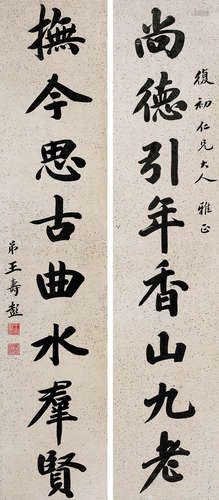 復初仁兄大人雅正
尚德引年香山九老
撫今思古曲水羣賢
弟王壽彭